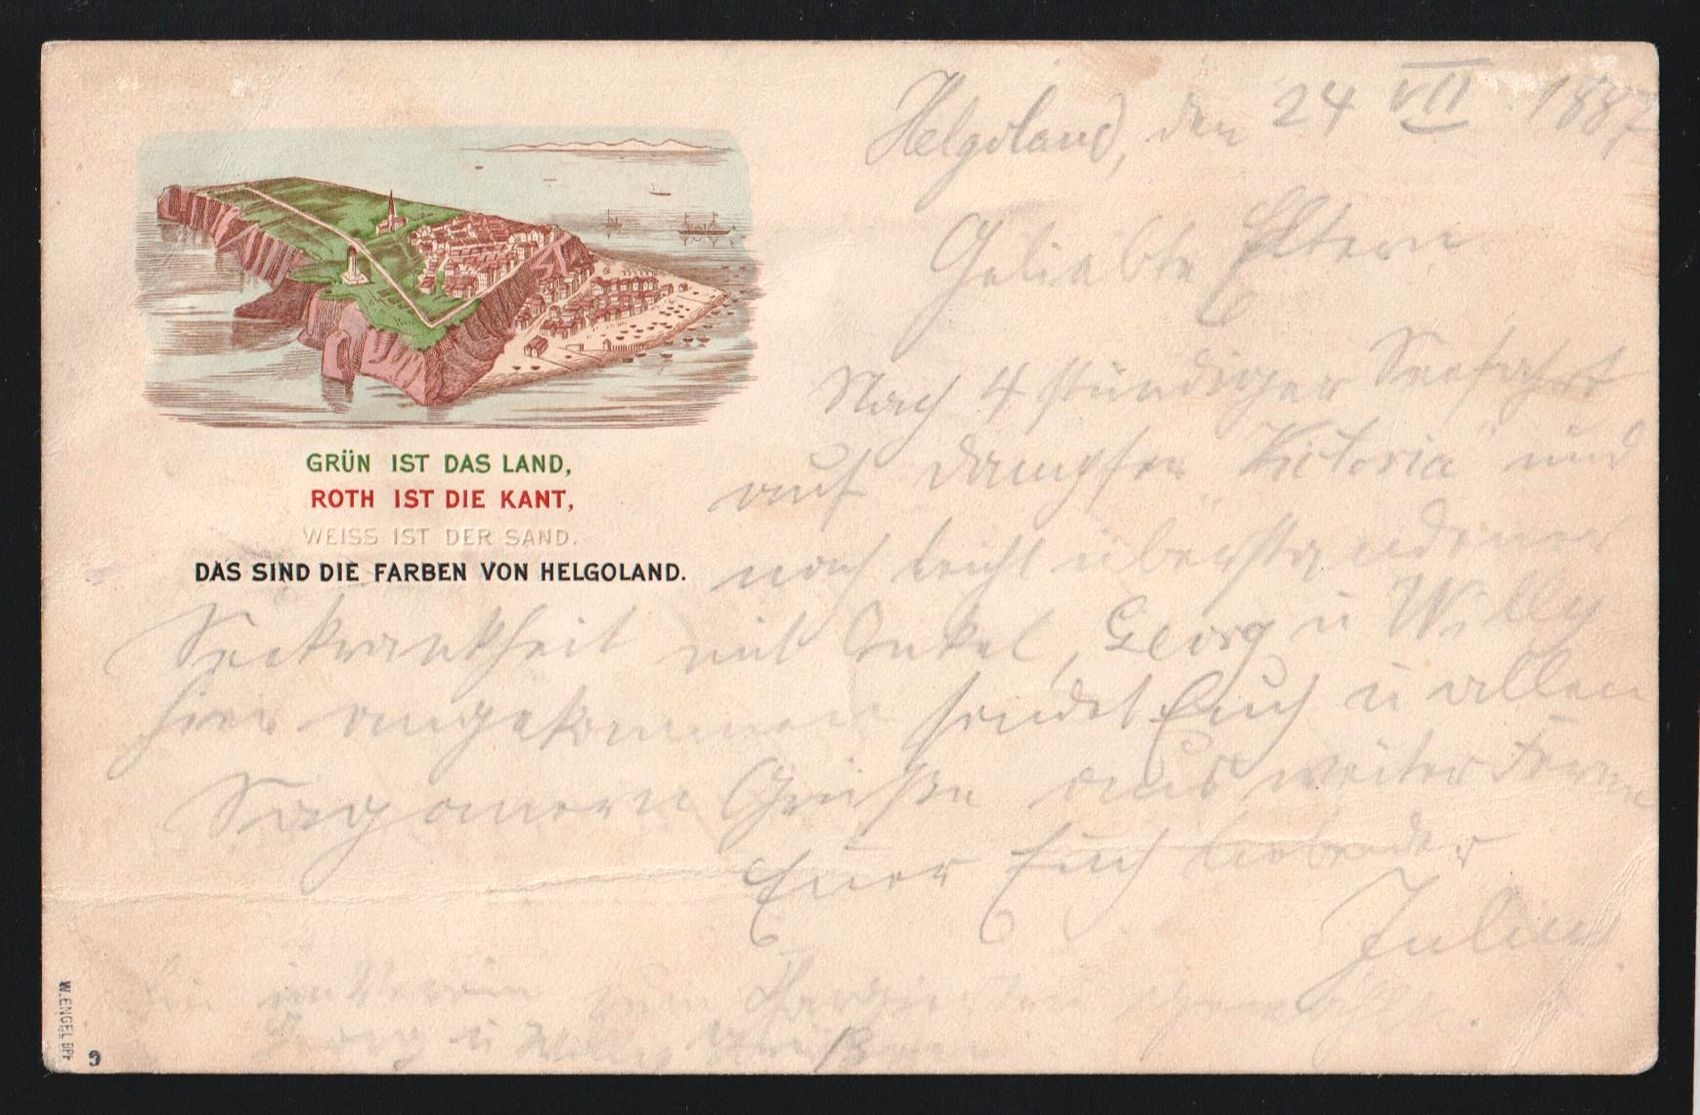 Helgoland, den 24 VII 1887
Geliebte Eltern
Nach 4 stündiger Seefahrt
auf Dampfer Victoria und
nach leicht überstandener
Seekrankheit mit Onkel, Georg u Willy
hier angekommen sendet Euch u allen
Grüße aus weiter Ferne
Euer Euch liebender
Julius
GRÜN IST DAS LAND,
ROTH IST DIE KANT,
WEISS IST DER SAND.
DAS SIND DIE FARBEN VON HELGOLAND.
zum
Georg u Willy
W. ENGEL
9